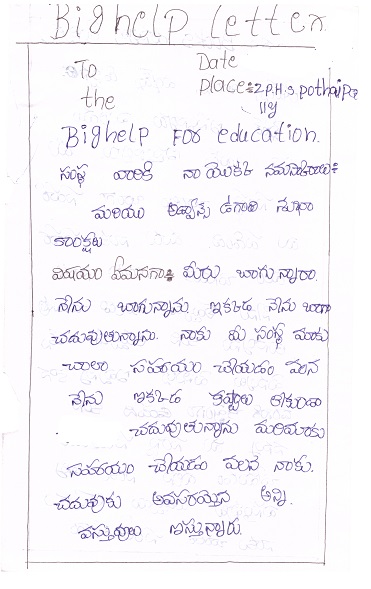 Bighelp letter
To
Date
place:z.p.H.s pothaipee
lly
the
Bighelp FOR education.
సంస్థ వారికి నా యొక్క నమస్కారాలు:
మరియు అడ్వాన్స్ ఉగాది శుభా
కాంక్షలు
విషయం ఏమనగా: మీరు బాగున్నారా.
నేను బాగున్నాను ఇక్కడ నేను బాగా
చదువుతున్నాను. నాకు మీ సంస్థ మాకు
చాలా సహాయం చేయడం వలన
నేను ఇక్కడ కష్టాలు లేకుండా
చదువుతున్నాను మరియు
సహాయం చేయడం వలన నాకు.
చదువుకు అవసరమైన అన్ని.
వస్తువులు ఇస్తున్నారు.